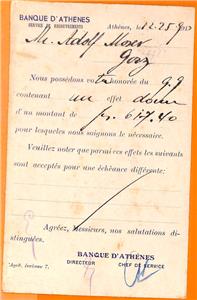 BANQUE D'ATHÈNES
SERVICE DE RECOUVREMENTS
Athènes, le 12-25 9
M. Adolf Moser
Gorz
Nous possédons votre honorée du 9.9
contenant un effet
d'un montant de fr. 617.40
pour lesquels nous saignons le nécessaire.
Veuillez noter que parmi ces effets les suivants
sont acceptés pour une échéance différente:
Agréez, messieurs, nos salutations dis-
tinguées.
BANQUE D'ATHÈNES
DIRECTEUR CHEF DE SERVICE